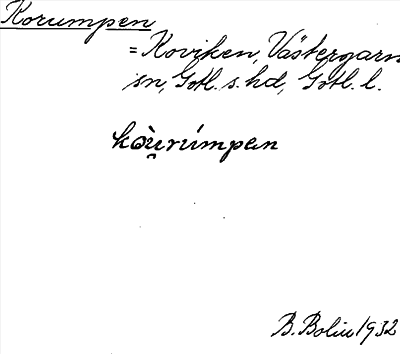 Korumpen
= Koviken, Västergarn
sn, Gotl. s. hd, Gotl. l.
kòu̯rúmpen
B. Bolin 1932